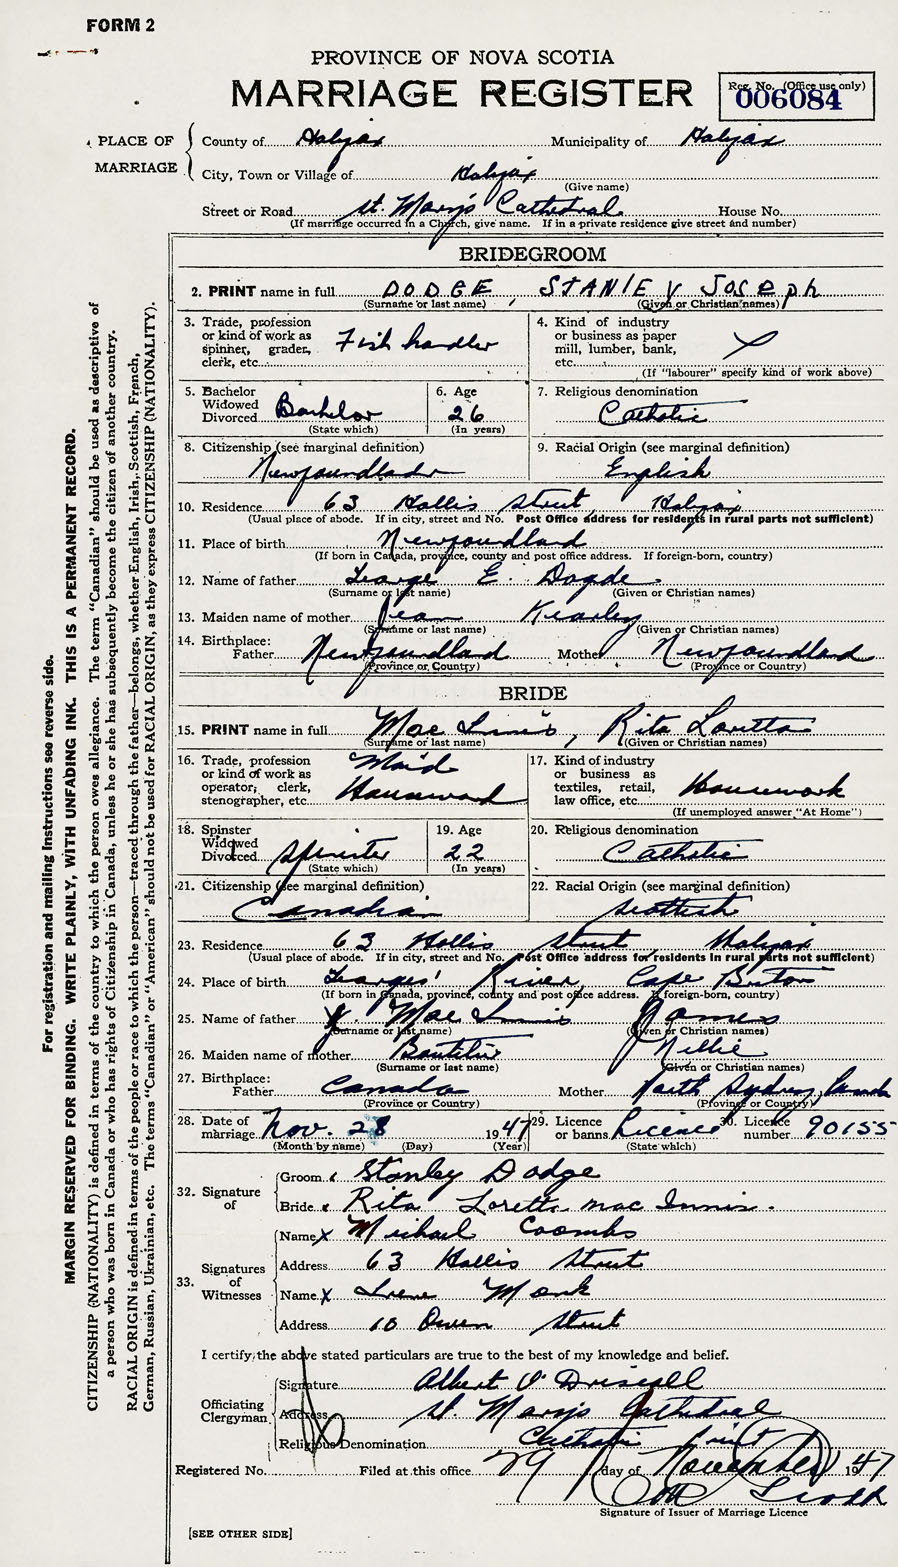 FORM 2
PROVINCE OF NOVA SCOTIA
MARRIAGE REGISTER
Reg. No. (Office use only)
006084
PLACE OF MARRIAGE
County of Halifax Municipality of Halifax
City, Town or Village of Halifax
(Give name)
Street or Road St. Mary's Cathedral House No.
(If marriage occurred in a Church, give name. If in a private residence give street and number)
BRIDEGROOM
2. PRINT name in full DODGE, STANLEY JOSEPh
(Surname or last name) (Given or Christian names)
3. Trade, profession or kind of work as spinner, grader, clerk, etc. Fish handler
4. Kind of industry or business as paper mill, lumber, bank, etc.
(If "labourer" specify kind of work above)
5. Bachelor Widowed Divorced Bachelor
(State which)
6. Age 26
(In years)
7. Religious denomination
Catholic
8. Citizenship (see marginal definition)
Newfoundland
9. Racial Origin (see marginal definition)
English
10. Residence 63 Hollis Street, Halifax
(Usual place of abode. If in city, street and No. Post Office address for residents in rural parts not sufficient)
11. Place of birth Newfoundland
(If born in Canada, province, county and post office address. If foreign-born, country)
12. Name of father George E. Dogde
(Surname or last name) (Given or Christian names)
13. Maiden name of mother Jean Kearley
(Surname or last name) (Given or Christian names)
14. Birthplace:
Father Newfoundland Mother Newfoundland
(Province or Country) (Province or Country)
BRIDE
15. PRINT name in full Mac Innis, Rita Loretta
(Surname or last name) (Given or Christian names)
16. Trade, profession or kind of work as operator, clerk, stenographer, etc. Maid
17. Kind of industry or business as textiles, retail, law office, etc. Housework
(If unemployed answer "At Home")
18. Spinster Widowed Divorced Spinster
(State which)
19. Age 22
(In years)
20. Religious denomination
Catholic
21. Citizenship (see marginal definition)
Canadian
22. Racial Origin (see marginal definition)
Scottish
23. Residence 63 Hollis Street Halifax
(Usual place of abode. If in city, street and No. Post Office address for residents in rural parts not sufficient)
24. Place of birth Georges' River, Cape Breton
(If born in Canada, province, county and post office address. If foreign-born, country)
25. Name of father Mac Innis James
(Surname or last name) (Given or Christian names)
26. Maiden name of mother Nellie
(Surname or last name) (Given or Christian names)
27. Birthplace:
Father Canada Mother North Sydney, Canada
(Province or Country) (Province or Country)
28. Date of marriage Nov. 28 1947
(Month by name) (Day) (Year)
29. Licence or banns Licence
(State which)
30. Licence number 90155
32. Signature of
Groom Stanley Dodge
Bride Rita Loretta Mac Innis.
33. Signatures of Witnesses
Name X Michael Coombs
Address 63 Hollis Street
Name X Irene Monk
Address 10 Owen Street
I certify the above stated particulars are true to the best of my knowledge and belief.
Officiating Clergyman
Signature Albert O'Driscoll
Address St. Mary's Cathedral
Religious Denomination Catholic Priest
Registered No. Filed at this office 29 day of November 1947
Signature of Issuer of Marriage Licence
[SEE OTHER SIDE]
For registration and mailing instructions see reverse side.
MARGIN RESERVED FOR BINDING. WRITE PLAINLY, WITH UNFADING INK. THIS IS A PERMANENT RECORD.
CITIZENSHIP (NATIONALITY) is defined in terms of the country to which the person owes allegiance. The term "Canadian" should be used as descriptive of
a person who was born in Canada or who has rights of Citizenship in Canada, unless he or she has subsequently become the citizen of another country.
RACIAL ORIGIN is defined in terms of the people or race to which the person—traced through the father—belongs, whether English, Irish, Scottish, French,
German, Russian, Ukrainian, etc. The terms "Canadian" or "American" should not be used for RACIAL ORIGIN, as they express CITIZENSHIP (NATIONALITY).